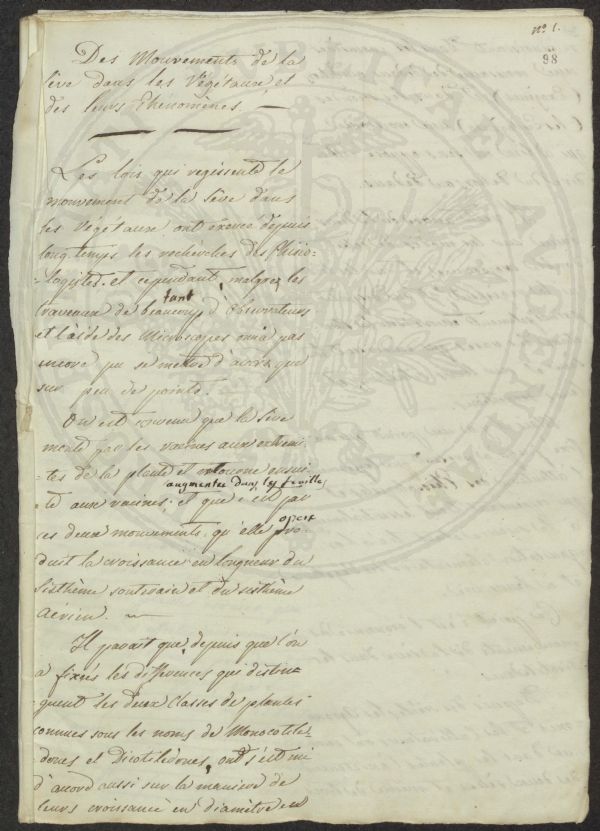 nº 1.
98
Des Mouvements de la
sève dans les Végétaux et
des leurs Phénomènes. —
Les lois qui regissent le
mouvement de la Sève dans
les Végétaux ont exercé depuis
long temps les recherches des Phisio-
-logistes. et cependant, malgrez les
travaux de tant d'Observateurs
et l'aide des Microscopes on n'a pas
encore pu se mettre d'accord que
sur peu de points.
On est convenu que la sève
monte par les racines aux extremi-
-tés de la plante et retourne ensui-
augmenter dans les feuilles
-te aux racines. et que c'est par
ces deux mouvements, qu'elle opere
la croissance en longueur du
Sisthème souterain et du sisthème
Aérien. —
Il parait que, depuis que l'on
a fixés les differences qui distin-
guent les deux classes de plantes
connues sous les noms de Monocotile-
dones et Dicotiledones, on s'est mi
d'acord aussi sur la manière de
leurs croissance en diamètre en